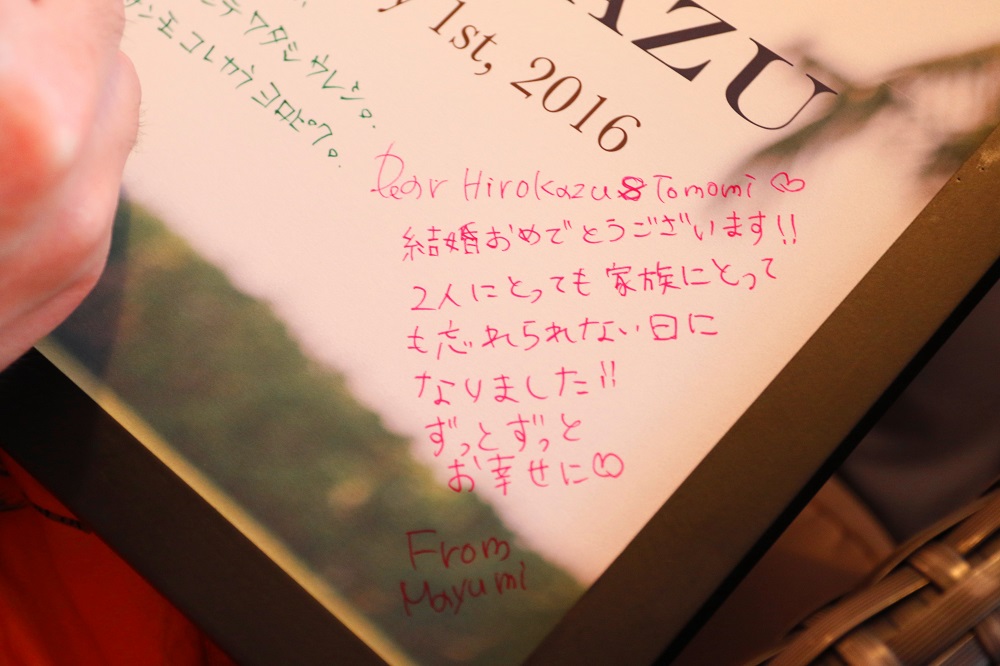 AZU
y 1st, 2016
ワタシ ウレシイ。
コレカラ ヨロピク。
Dear Hirokazu & Tomomi ♡
結婚おめでとうございます!!
2人にとっても家族にとって
も忘れられない日に
なりました!!
ずっとずっと
お幸せに♡
From
Mayumi